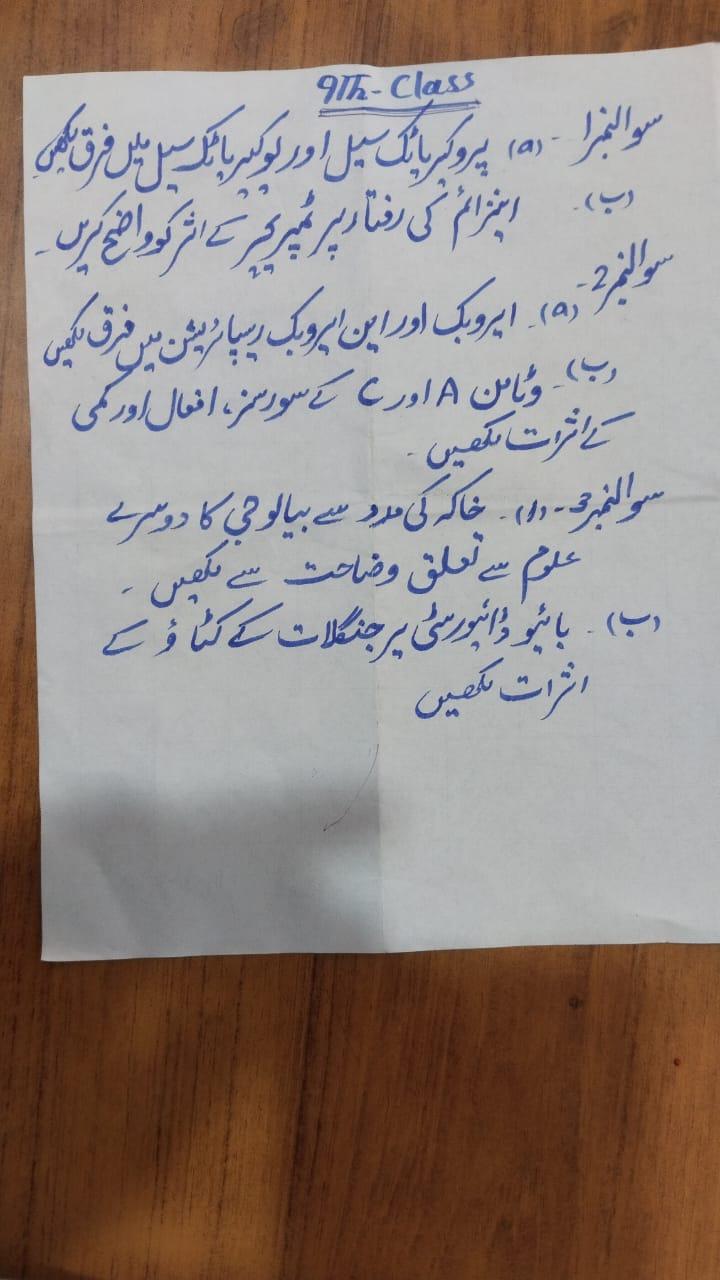 9Th - Class
سوالنمبر1 - (a) پروکیریاٹک سیل اور یوکیریاٹک سیل میں فرق لکھیں۔
(ب)۔ اینزائم کی رفتار پر ٹمپریچر کے اثر کو واضح کریں۔
سوالنمبر2- (a)۔ ایروبک اور این ایروبک ریسپائریشن میں فرق لکھیں
(ب)۔ وٹامن A اور C کے سورسز، افعال اور کمی
کے اثرات لکھیں۔
سوالنمبر3- (1)۔ خاکہ کی مدد سے بیالوجی کا دوسرے
علوم سے تعلق وضاحت سے لکھیں۔
(ب)۔ بائیو ڈائیورسٹی پر جنگلات کے کٹاؤ کے
اثرات لکھیں